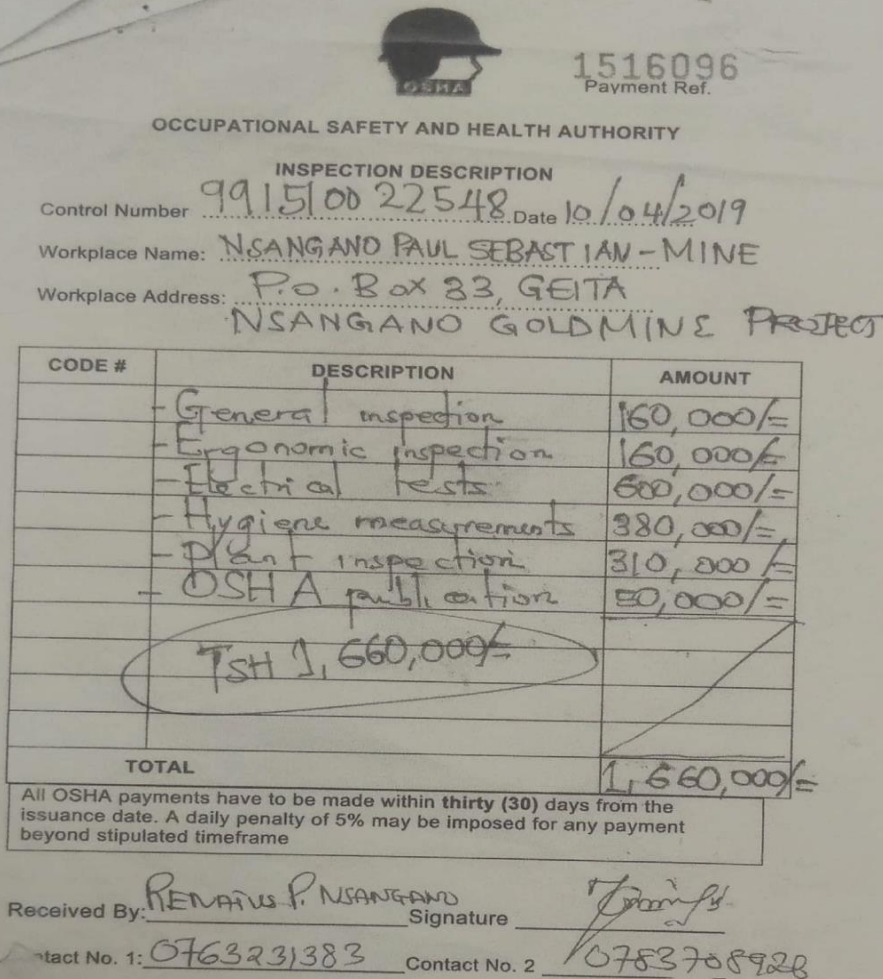 OSHA
1516096
Payment Ref.
OCCUPATIONAL SAFETY AND HEALTH AUTHORITY
INSPECTION DESCRIPTION
Control Number 991510022548 Date 10/04/2019
Workplace Name: NSANGANO PAUL SEBASTIAN-MINE
Workplace Address: P.O. Box 33, GEITA
NSANGANO GOLDMINE PROJECT
CODE # DESCRIPTION AMOUNT
- General inspection 160,000/=
- Ergonomic inspection 160,000/=
- Electrical tests 600,000/=
- Hygiene measurements 380,000/=
- Plant inspection 310,000/=
- OSHA publication 50,000/=
TSH 1,660,000/=
TOTAL 1,660,000/=
All OSHA payments have to be made within thirty (30) days from the
issuance date. A daily penalty of 5% may be imposed for any payment
beyond stipulated timeframe
Received By: RENATUS P. NSANGANO Signature
tact No. 1: 0763231383 Contact No. 2 0783708928